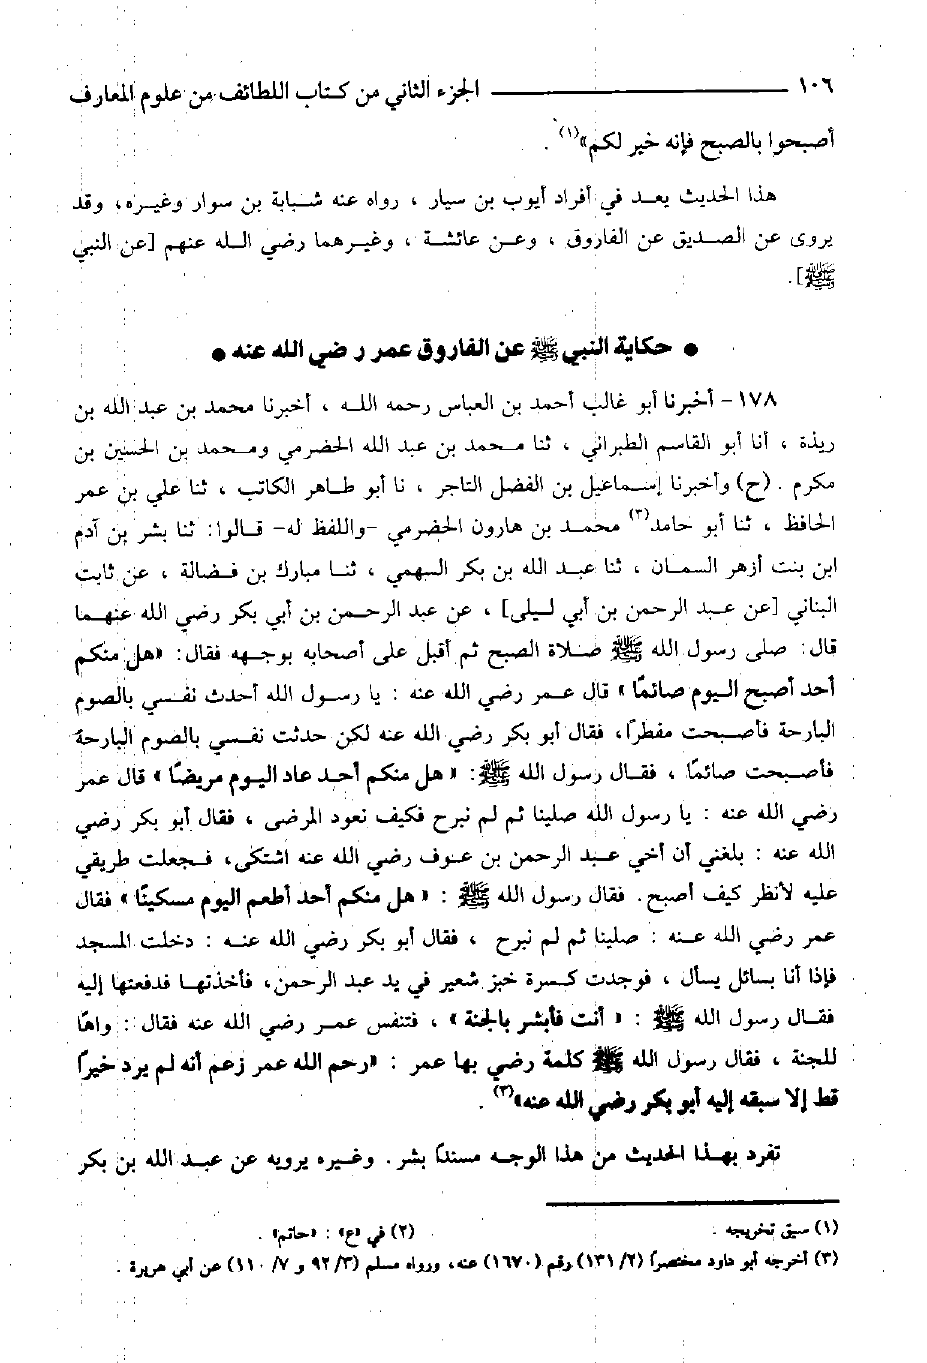 ١٠٦ الجزء الثاني من كتاب اللطائف من علوم المعارف
أصبحوا بالصبح فإنه خير لكم»(١) .
هذا الحديث يعد في أفراد أيوب بن سيار ، رواه عنه شبابة بن سوار وغيره، وقد
يروى عن الصديق عن الفاروق ، وعن عائشة ، وغيرهما رضي الله عنهم [عن النبي
ﷺ].
● حكاية النبي ﷺ عن الفاروق عمر رضي الله عنه ●
١٧٨- أخبرنا أبو غالب أحمد بن العباس رحمه الله ، أخبرنا محمد بن عبد الله بن
ريذة ، أنا أبو القاسم الطبراني ، ثنا محمد بن عبد الله الحضرمي ومحمد بن الحسين بن
مكرم . (ح) وأخبرنا إسماعيل بن الفضل التاجر ، نا أبو طاهر الكاتب ، ثنا علي بن عمر
الحافظ ، ثنا أبو حامد(٢) محمد بن هارون الحضرمي -واللفظ له- قالوا: ثنا بشر بن آدم
ابن بنت أزهر السمان ، ثنا عبد الله بن بكر السهمي ، ثنا مبارك بن فضالة ، عن ثابت
البناني [عن عبد الرحمن بن أبي ليلى] ، عن عبد الرحمن بن أبي بكر رضي الله عنهما
قال: صلى رسول الله ﷺ صلاة الصبح ثم أقبل على أصحابه بوجهه فقال: «هل منكم
أحد أصبح اليوم صائمًا» قال عمر رضي الله عنه : يا رسول الله أحدث نفسي بالصوم
البارحة فأصبحت مفطرًا، فقال أبو بكر رضي الله عنه لكن حدثت نفسي بالصوم البارحة
فأصبحت صائمًا ، فقال رسول الله ﷺ: «هل منكم أحد عاد اليوم مريضًا» قال عمر
رضي الله عنه : يا رسول الله صلينا ثم لم نبرح فكيف نعود المرضى ، فقال أبو بكر رضي
الله عنه : بلغني أن أخي عبد الرحمن بن عوف رضي الله عنه اشتكى، فجعلت طريقي
عليه لأنظر كيف أصبح. فقال رسول الله ﷺ : «هل منكم أحد أطعم اليوم مسكينًا» فقال
عمر رضي الله عنه : صلينا ثم لم نبرح ، فقال أبو بكر رضي الله عنه : دخلت المسجد
فإذا أنا بسائل يسأل ، فوجدت كسرة خبز شعير في يد عبد الرحمن، فأخذتها فدفعتها إليه
فقال رسول الله ﷺ : «أنت فأبشر بالجنة» ، فتنفس عمر رضي الله عنه فقال : واهًا
للجنة ، فقال رسول الله ﷺ كلمة رضي بها عمر : «رحم الله عمر زعم أنه لم يرد خيرًا
قط إلا سبقه إليه أبو بكر رضي الله عنه»(٣) .
تفرد بهذا الحديث من هذا الوجه مسندًا بشر . وغيره يرويه عن عبد الله بن بكر
(١) سبق تخريجه . (٢) في «ع» : «حاتم» .
(٣) أخرجه أبو داود مختصرًا (٢/ ١٣١) رقم (١٦٧٠) عنه، ورواه مسلم (٣/ ٩٢ و ٧/ ١١٠) عن أبي هريرة .